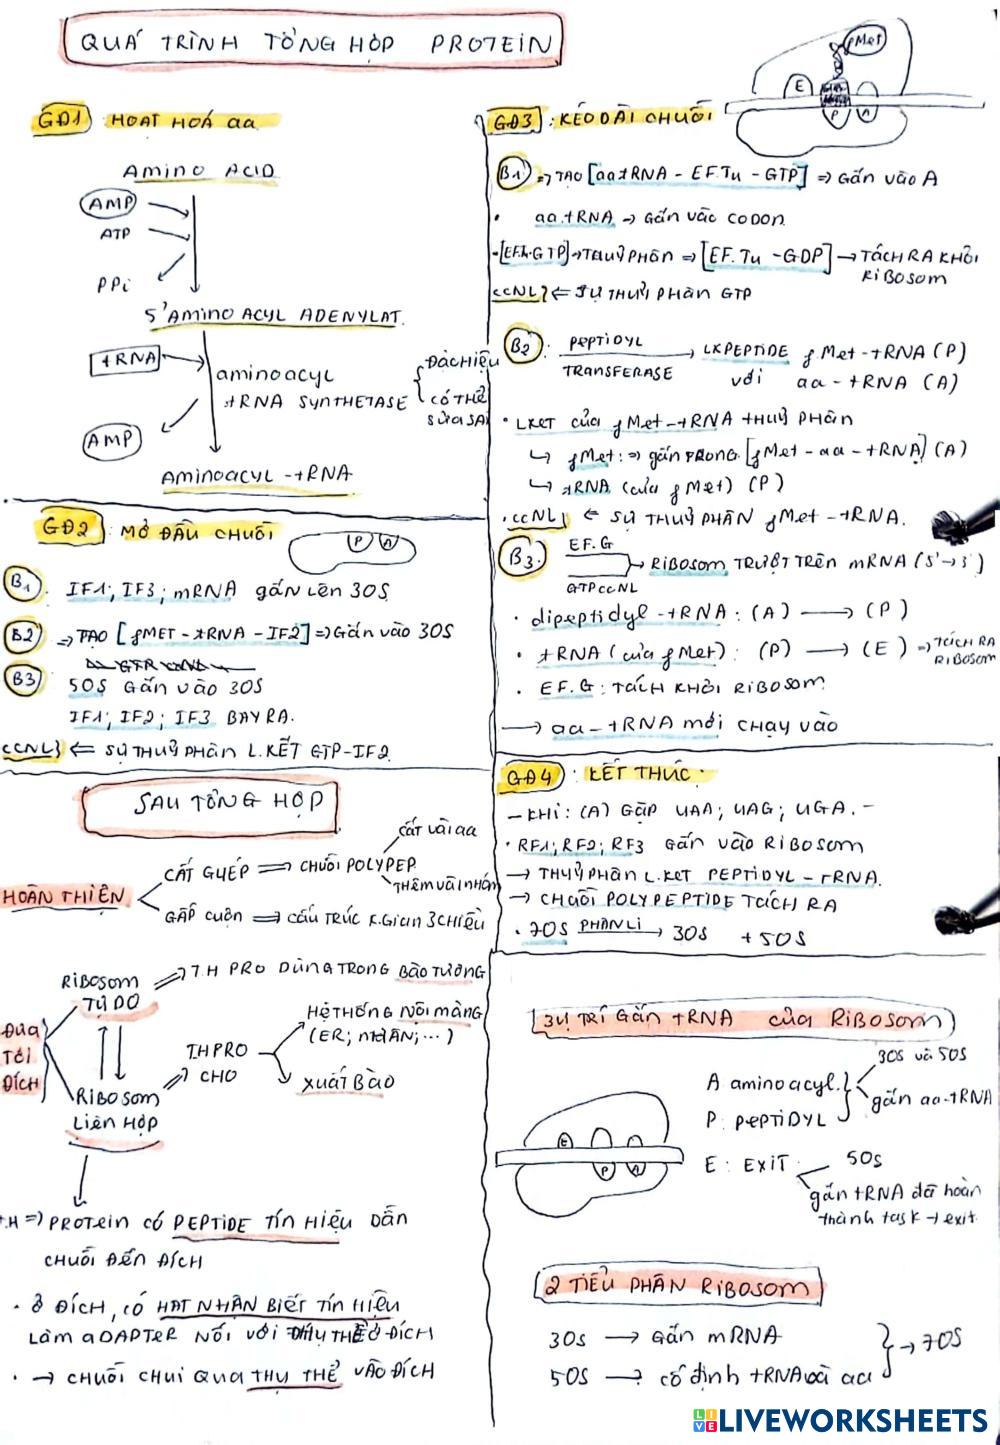 QUÁ TRÌNH TỔNG HỢP PROTEIN
GĐ1: HOẠT HOÁ aa
AMINO ACID
AMP
ATP
PPi
5' AMINO ACYL ADENYLAT.
tRNA
aminoacyl
tRNA SYNTHETASE
ĐẶC HIỆU
CÓ THỂ
SỬA SAI
AMP
AMINOACYL-tRNA
GĐ2: MỞ ĐẦU CHUỖI
P A
B1. IF1; IF3; mRNA gắn lên 30S
B2 => TẠO [fMET-tRNA-IF2] => GẮN VÀO 30S
B3 50S GẮN VÀO 30S
IF1; IF2; IF3 BAY RA.
CCNL <= SỰ THUỶ PHÂN L.KẾT GTP-IF2
fMet
E P A
GĐ3: KÉO DÀI CHUỖI
B1 => TẠO [aatRNA - EF.Tu - GTP] => GẮN VÀO A
• aa.tRNA -> GẮN VÀO CODON.
-> THUỶ PHÂN => [EF.Tu -GDP] -> TÁCH RA KHỎI
RIBOSOM
CCNL <= SỰ THUỶ PHÂN GTP
B2: PEPTIDYL
TRANSFERASE
LKPEPTIDE fMet-tRNA (P)
VỚI aa-tRNA (A)
• LKET CỦA fMet-tRNA THUỶ PHÂN
fMet: => GẮN TRONG [fMet-aa-tRNA] (A)
tRNA (CỦA fMet) (P)
• CCNL <= SỰ THUỶ PHÂN fMet-tRNA.
B3. EF.G
GTP CCNL
RIBOSOM TRƯỢT TRÊN mRNA (5'->3')
• dipeptidyl-tRNA: (A) -> (P)
• tRNA (CỦA fMet): (P) -> (E) => TÁCH RA
RIBOSOM
• EF.G: TÁCH KHỎI RIBOSOM
-> aa-tRNA MỚI CHẠY VÀO
GĐ4: KẾT THÚC.
- KHI: (A) GẶP UAA; UAG; UGA. -
• RF1; RF2; RF3 GẮN VÀO RIBOSOM
-> THUỶ PHÂN L.KET PEPTIDYL-tRNA.
-> CHUỖI POLYPEPTIDE TÁCH RA
• 70S PHÂN LI -> 30S + 50S
SAU TỔNG HỢP
HOÀN THIỆN
CẮT GHÉP => CHUỖI POLYPEP.
CẮT VÀI aa
THÊM VÀI NHÓM
GẤP CUỘN => CẤU TRÚC K.GIAN 3 CHIỀU
ĐƯA
TỚI
ĐÍCH
RIBOSOM
TỰ DO
=> T.H PRO DÙNG TRONG BÀO TƯƠNG
RIBOSOM
LIÊN HỢP
=> TH PRO
CHO
HỆ THỐNG NỘI MÀNG
(ER; NHÂN; ...)
XUẤT BÀO
T.H => PROTEIN CÓ PEPTIDE TÍN HIỆU DẪN
CHUỖI ĐẾN ĐÍCH
• Ở ĐÍCH, CÓ HẠT NHẬN BIẾT TÍN HIỆU
LÀM ADAPTER NỐI VỚI THỤ THỂ Ở ĐÍCH
• -> CHUỖI CHUI QUA THỤ THỂ VÀO ĐÍCH
3 VỊ TRÍ GẮN tRNA CỦA RIBOSOM
E P A
A aminoacyl.
P: PEPTIDYL
30S VÀ 50S
gắn aa-tRNA
E: EXIT.
50S
gắn tRNA đã hoàn
thành task -> exit.
2 TIỂU PHÂN RIBOSOM
30S -> GẮN mRNA
50S -> CỐ ĐỊNH tRNA VÀ aa
-> 70S
LIVEWORKSHEETS